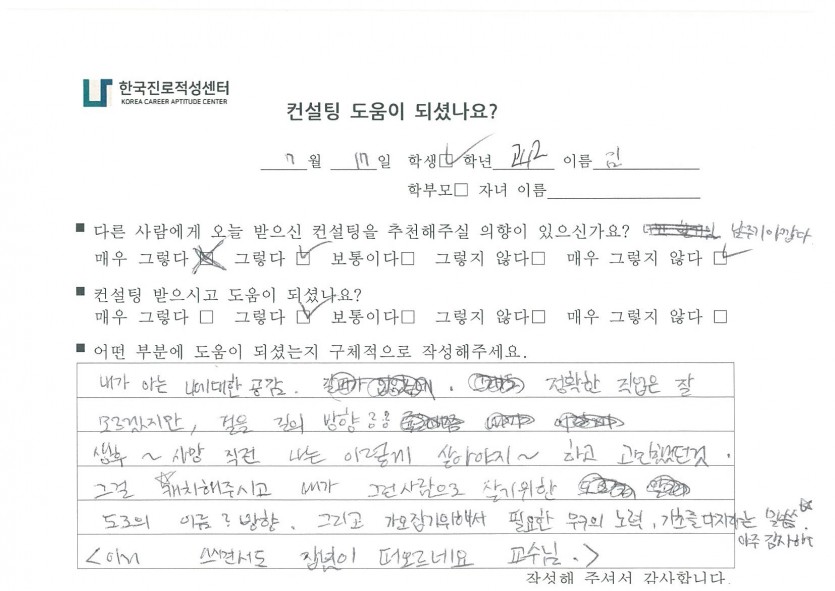 한국진로적성센터
KOREA CAREER APTITUDE CENTER
컨설팅 도움이 되셨나요?
7 월 17 일 학생☑ 학년 고2 이름 김
학부모□ 자녀 이름
■ 다른 사람에게 오늘 받으신 컨설팅을 추천해주실 의향이 있으신가요? 남주기아깝다.
매우 그렇다 ☒ 그렇다 ☑ 보통이다□ 그렇지 않다□ 매우 그렇지 않다 ☑
■ 컨설팅 받으시고 도움이 되셨나요?
매우 그렇다 □ 그렇다 ☑ 보통이다□ 그렇지 않다□ 매우 그렇지 않다 □
■ 어떤 부분에 도움이 되셨는지 구체적으로 작성해주세요.
내가 아는 나에대한 공감. 정확한 직업은 잘
모르겠지만, 걸을 길의 방향
생후 ~ 사망 직전 나는 이렇게 살아야지~ 하고 고민했던것.
그걸 캐치해주시고 내가 그런사람으로 살기위한
도로의 이름? 방향. 그리고 가오잡기위해서 필요한 무구의 노력, 기초를 다지라는 말씀.
아주 감사하
< 쓰면서도 집념이 떠오르네요 교수님.>
작성해 주셔서 감사합니다.